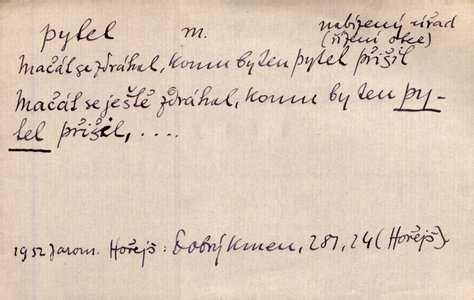 pytel m. nabízený úřad
(řízení obce)
Mačát se zdráhal, komu by ten pytel přišil
Mačát se ještě zdráhal, komu by ten py-
tel přišil, ....
1952 Jarom. Hořejš: Dobrý kmen, 287, 24 (Hořejš)